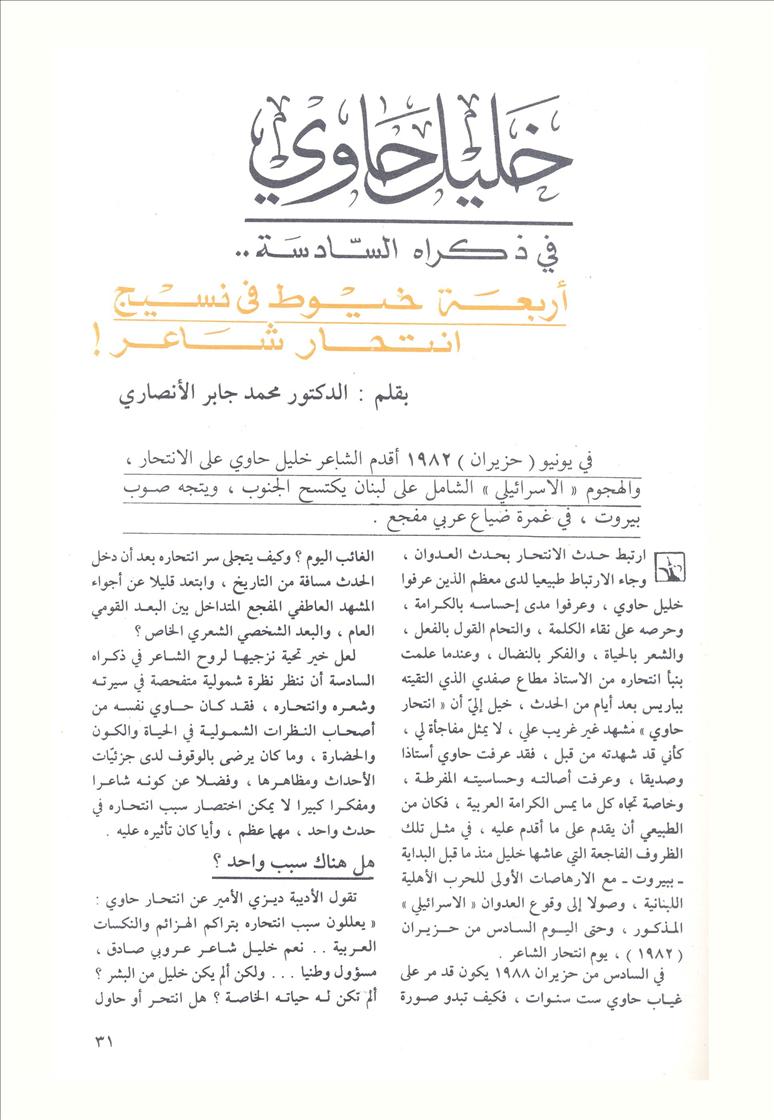 خليل حاوي
في ذكراه السّادسَة ..
أربعَة خيوط في نسيج
انتحار شاعر !
بقلم : الدكتور محمد جابر الأنصاري
في يونيو ( حزيران ) ١٩٨٢ أقدم الشاعر خليل حاوي على الانتحار ،
والهجوم « الاسرائيلي » الشامل على لبنان يكتسح الجنوب ، ويتجه صوب
بيروت ، في غمرة ضياع عربي مفجع .
ارتبط حدث الانتحار بحدث العدوان ،
وجاء الارتباط طبيعيا لدى معظم الذين عرفوا
خليل حاوي ، وعرفوا مدى إحساسه بالكرامة ،
وحرصه على نقاء الكلمة ، والتحام القول بالفعل ،
والشعر بالحياة ، والفكر بالنضال ، وعندما علمت
بنبأ انتحاره من الاستاذ مطاع صفدي الذي التقيته
بباريس بعد أيام من الحدث ، خيل إليّ أن « انتحار
حاوي » مشهد غير غريب علي ، لا يمثل مفاجأة لي ،
كأني قد شهدته من قبل ، فقد عرفت حاوي أستاذا
وصديقا ، وعرفت أصالته وحساسيته المفرطة ،
وخاصة تجاه كل ما يمس الكرامة العربية ، فكان من
الطبيعي أن يقدم على ما أقدم عليه ، في مثل تلك
الظروف الفاجعة التي عاشها خليل منذ ما قبل البداية
ـ ببيروت ـ مع الارهاصات الأولى للحرب الأهلية
اللبنانية ، وصولا إلى وقوع العدوان « الاسرائيلي »
المذكور ، وحتى اليوم السادس من حزيران
( ١٩٨٢ ) ، يوم انتحار الشاعر .
في السادس من حزيران ١٩٨٨ يكون قد مر على
غياب حاوي ست سنوات ، فكيف تبدو صورة
الغائب اليوم ؟ وكيف يتجلى سر انتحاره بعد أن دخل
الحدث مسافة من التاريخ ، وابتعد قليلا عن أجواء
المشهد العاطفي المفجع المتداخل بين البعد القومي
العام ، والبعد الشخصي الشعري الخاص ؟
لعل خير تحية نزجيها لروح الشاعر في ذكراه
السادسة أن ننظر نظرة شمولية متفحصة في سيرته
وشعره وانتحاره ، فقد كان حاوي نفسه من
أصحاب النظرات الشمولية في الحياة والكون
والحضارة ، وما كان يرضى بالوقوف لدى جزئيّات
الأحداث ومظاهرها ، وفضلا عن كونه شاعرا
ومفكرا كبيرا لا يمكن اختصار سبب انتحاره في
حدث واحد ، مهما عظم ، وأيا كان تأثيره عليه .
هل هناك سبب واحد ؟
تقول الأديبة ديزي الأمير عن انتحار حاوي :
« يعللون سبب انتحاره بتراكم الهزائم والنكسات
العربية . . نعم خليل شاعر عروبي صادق ،
مسؤول وطنيا ... ولكن ألم يكن خليل من البشر ؟
ألم تكن له حياته الخاصة ؟ هل انتحر أو حاول
٣١